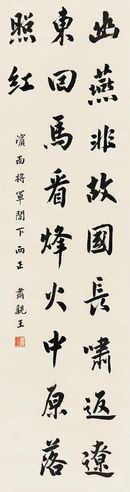 幽燕非故國長嘯返遼
東回馬看烽火中原落
照紅
濱面將軍閣下正 肅親王